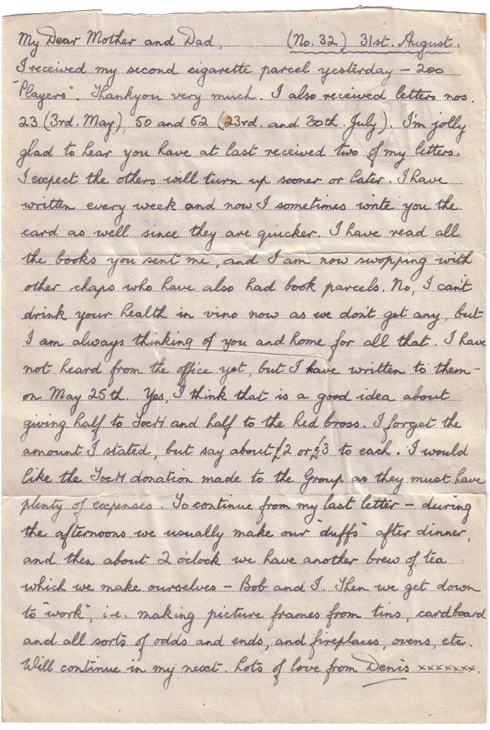 My Dear Mother and Dad, (No. 32) 31st. August.
I received my second cigarette parcel yesterday – 200
"Players". Thankyou very much. I also received letters nos.
23 (3rd. May), 50 and 52 (23rd. and 30th July). I'm jolly
glad to hear you have at last received two of my letters.
I expect the others will turn up sooner or later. I have
written every week and now I sometimes write you the
card as well since they are quicker. I have read all
the books you sent me, and I am now swopping with
other chaps who have also had book parcels. No, I can't
drink your health in vino now as we don't get any, but
I am always thinking of you and home for all that. I have
not heard from the office yet, but I have written to them –
on May 25th. Yes, I think that is a good idea about
giving half to TocH and half to the Red Cross. I forget the
amount I stated, but say about £2 or £3 to each. I would
like the TocH donation made to the Group as they must have
plenty of expenses. To continue from my last letter – during
the afternoons we usually make our "duffs" after dinner,
and then about 2 o'clock we have another brew of tea
which we make ourselves – Bob and I. Then we get down
to "work", i.e. making picture frames from tins, cardboard
and all sorts of odds and ends, and fireplaces, ovens, etc.
Will continue in my next. Lots of love from Denis xxxxxxx.